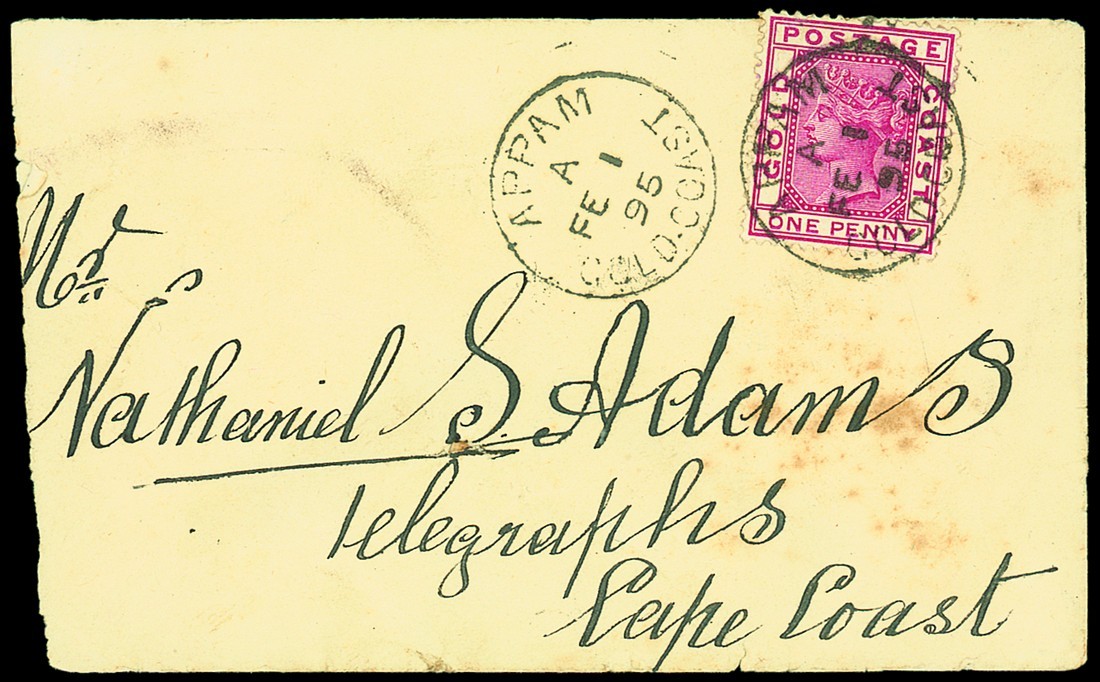 POSTAGE
GOLD COAST
ONE PENNY
APPAM
A
FE 1
95
GOLD.COAST
APPAM
A
FE 1
95
GOLD.COAST
Mr
Nathaniel S. Adams
Telegraphs
Cape Coast